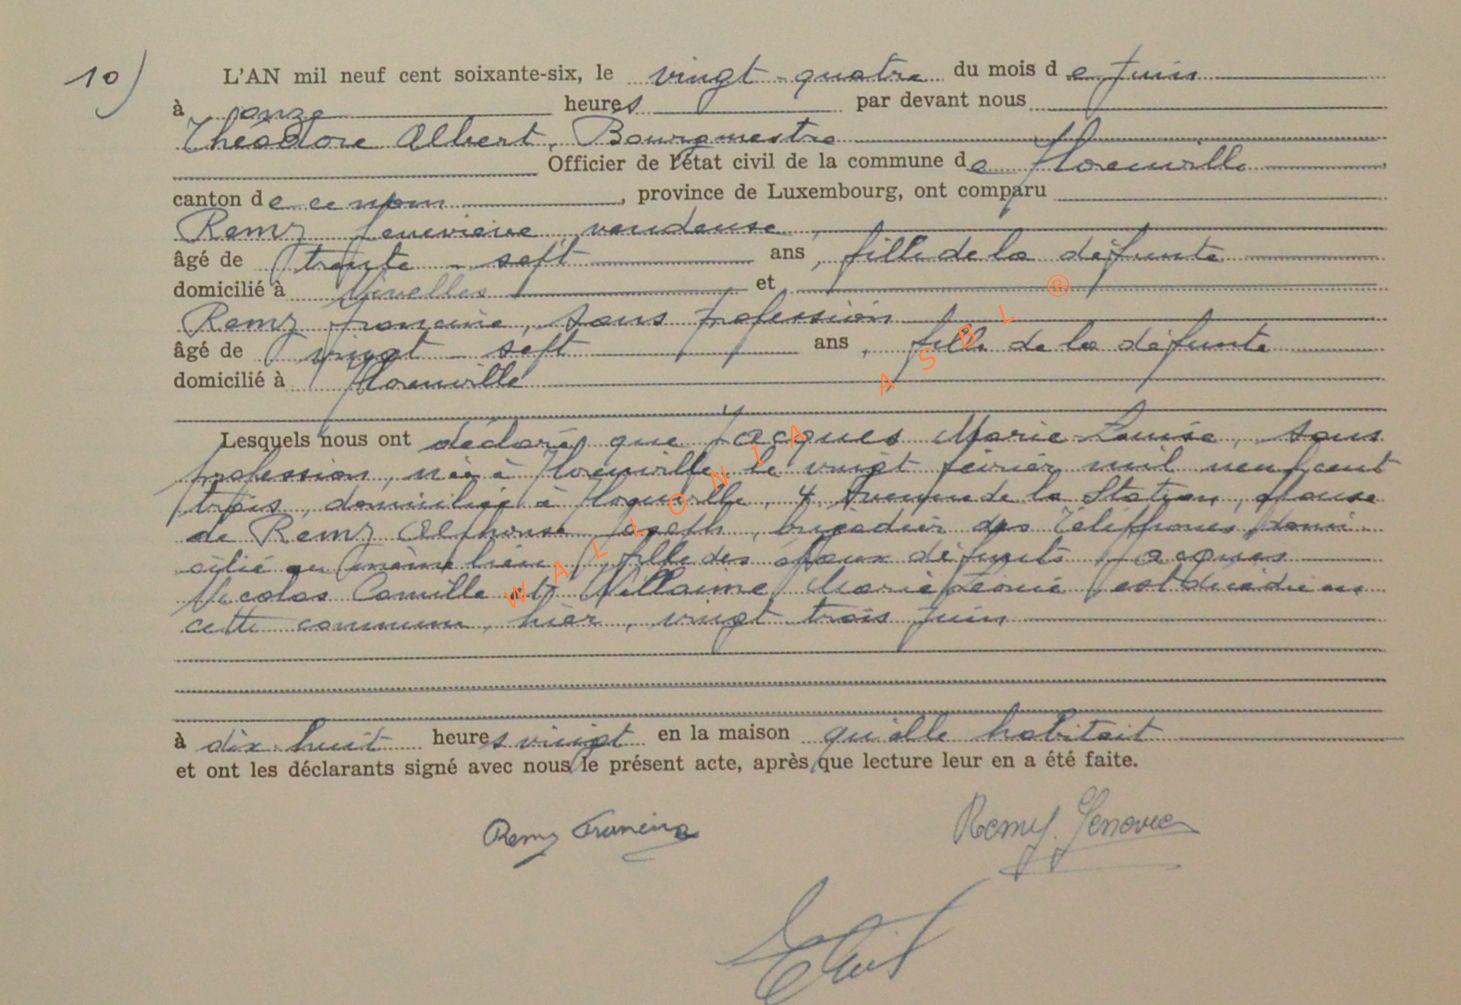 10) L'AN mil neuf cent soixante-six, le vingt-quatre du mois de Juin
à onze heures par devant nous
Théodore Albert, Bourgmestre
Officier de l'état civil de la commune de Florenville
canton de ce nom, province de Luxembourg, ont comparu
Remy Geneviève, vendeuse,
âgé de trente-sept ans, fille de la défunte
domicilié à Nivelles et
Remy Francine, sans profession
âgé de vingt-sept ans, fille de la défunte
domicilié à Florenville
Lesquels nous ont déclaré que Jacques Marie Louise, sans
profession, née à Florenville, le vingt février mil neuf cent
trois, domiciliée à Florenville, 4, Avenue de la Station, épouse
de Remy Alphonse Joseph, brigadier des Téléphones, domi-
cilié au même lieu, fille des époux défunts Jacques
Nicolas Camille et Villaume Marie Léonie est décédée en
cette commune, hier, vingt trois juin
à dix-huit heures vingt en la maison qu'elle habitait
et ont les déclarants signé avec nous le présent acte, après que lecture leur en a été faite.
Remy Francine Remy Genevieve
WALLONIA ASBL ®